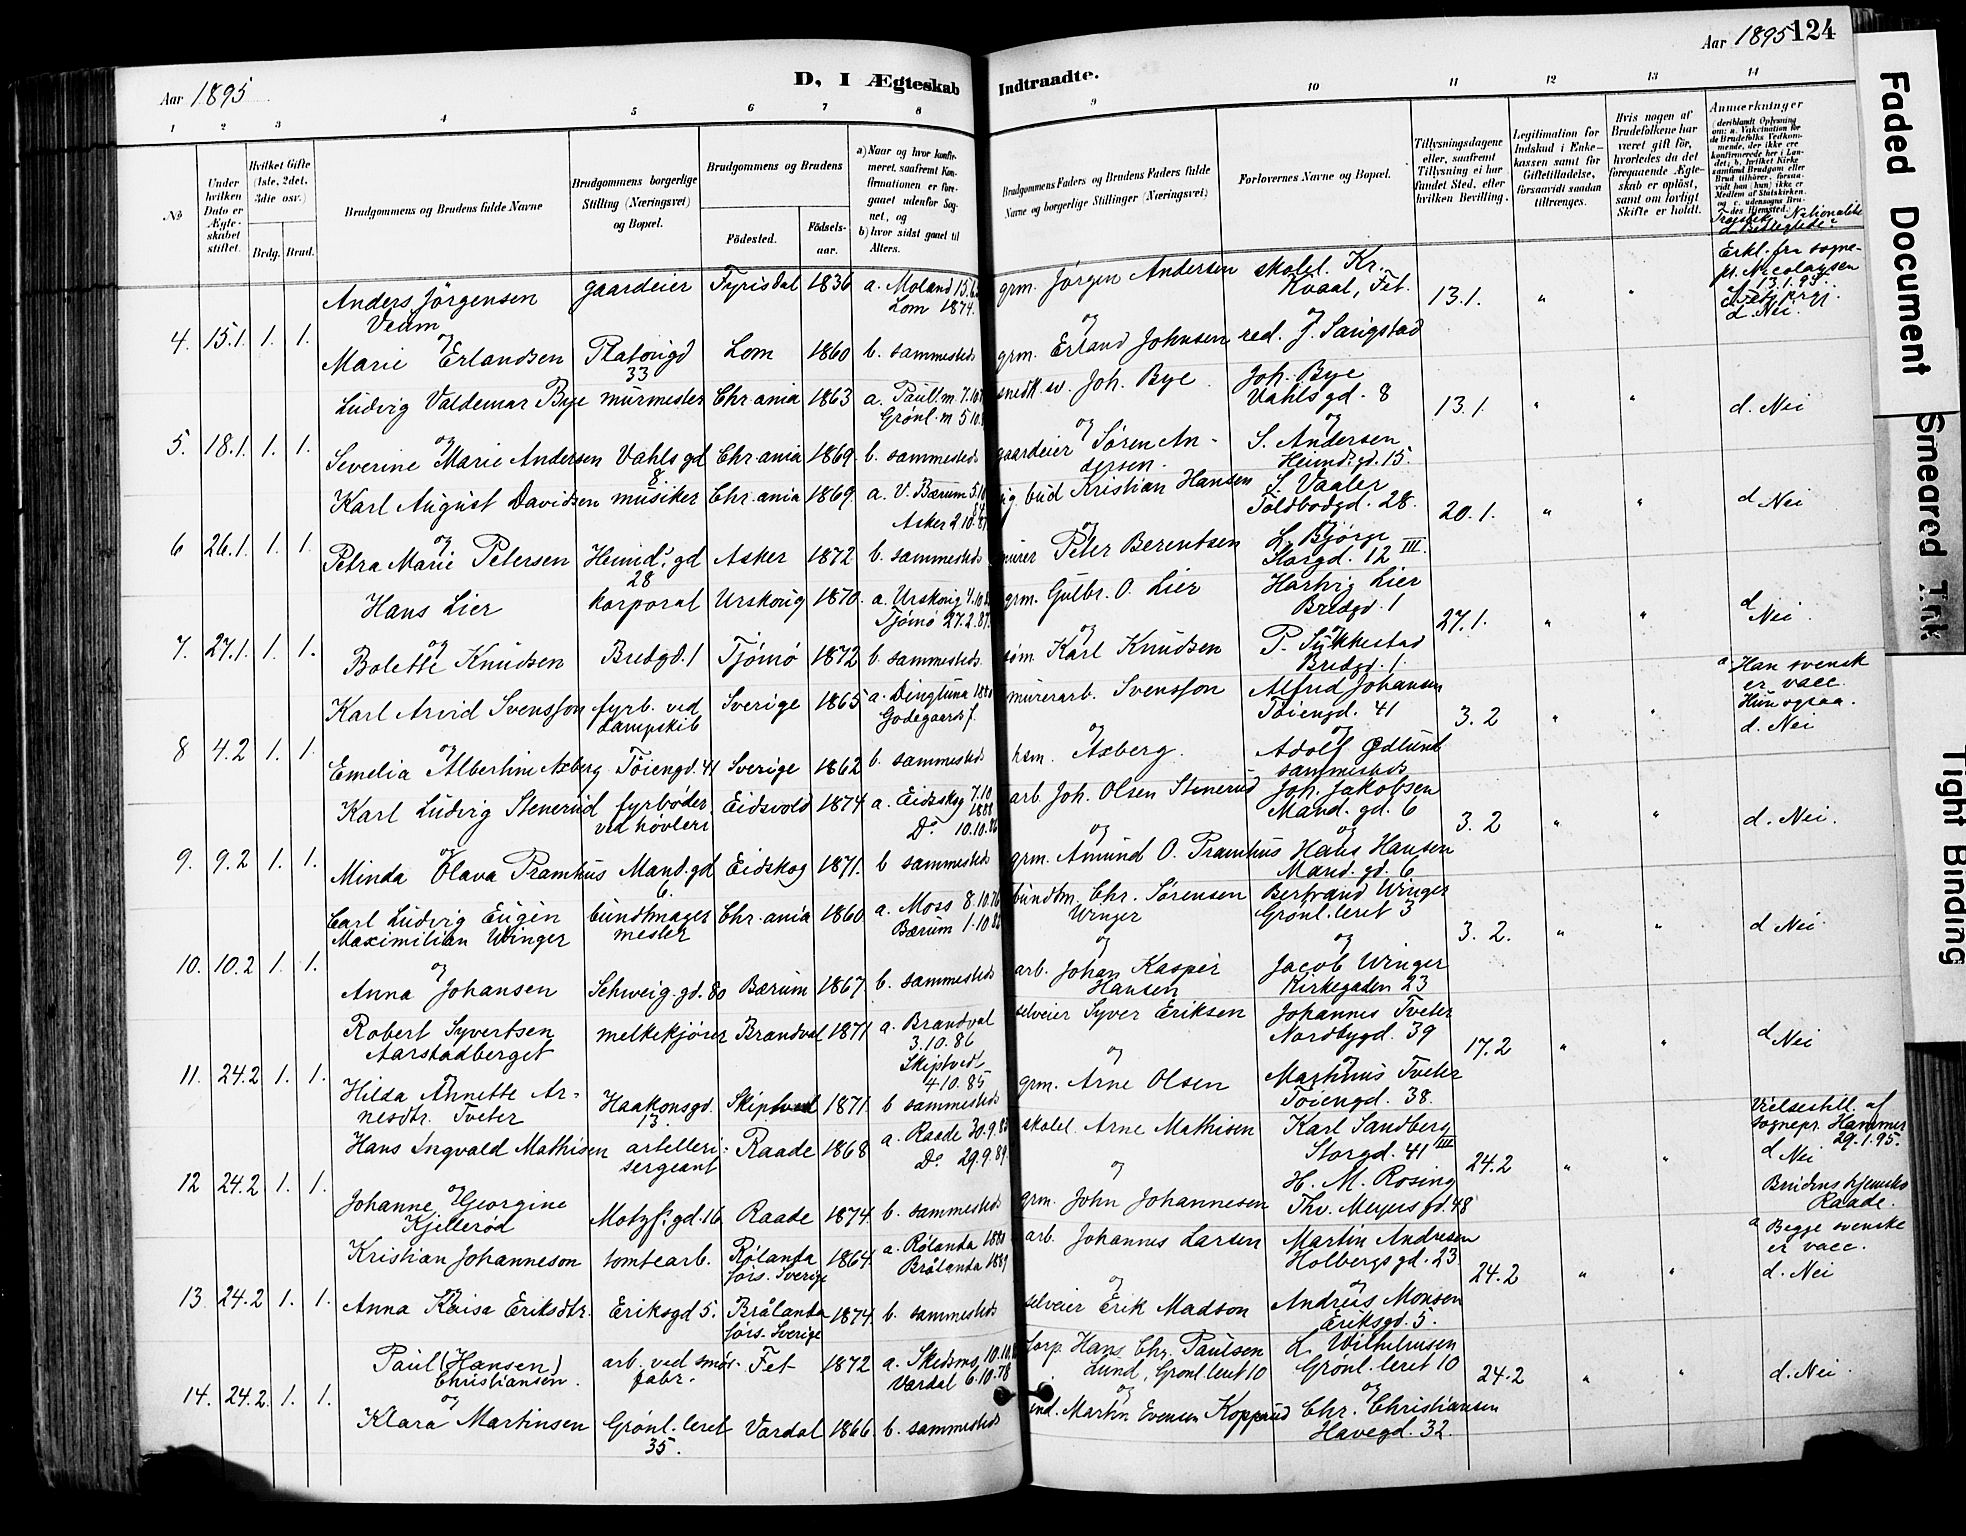 Aar 1895
D, I Ægteskab
Indtraadte.
Aar 1895 124
1 2 3 4 5 6 7 8
9 10 11 12 13 14
No
Under hvilken Dato er Ægteskabet stiftet.
Hvilket Gifte (1ste, 2det, 3die osv.)
Brdg. Brud.
Brudgommens og Brudens fulde Navne
Brudgommens borgerlige Stilling (Næringsvei) og Bopæl.
Brudgommens og Brudens
Födested.
Födselsaar.
a) Naar og hvor konfirmeret, saafremt Konfirmationen er foregaaet udenfor Sognet, og
b) hvor sidst gaaet til Alters.
Brudgommens Faders og Brudens Faders fulde Navne og borgerlige Stillinger (Næringsvei)
Forlovernes Navne og Bopæl.
Tillysningsdagene eller, saafremt Tillysning ei har fundet Sted, efter hvilken Bevilling.
Legitimation for Indskud i Enkekassen samt for Giftetilladelse, forsaavidt saadan tiltrænges.
Hvis nogen af Brudefolkene har været gift før, hvorledes da det foregaaende Ægteskab er opløst, samt om lovligt Skifte er holdt.
Anmærkninger
(deriblandt Oplysning om: a. Vakcination for de Brudefolks Vedkommende, der ikke ere konfirmerede her i Landet; b. hvilket Kirkesamfund Brudgom eller Brud tilhører, forsaavidt han (hun) ikke er Medlem af Statskirken, og c. udensogns Brudes Hjemsted.
4. 15.1. 1. 1.
Anders Jörgensen Veum gaardeier Fyrisdal 1836 a. Moland 15.6 Lom 1874.
og
Marie Erlandsen Platougd 33 Lom 1860 b. sammesteds
grm. Jörgen Andersen skolel. Kr. Kvaal, Fet. 13.1. " "
og
grm. Erland Johnsen red. J. Sangstad
Erkl. fra sognepr. Nicolaysen
d. Nei.
5. 18.1. 1. 1.
Ludvig Valdemar Bye murmester Chr.ania 1863 a. Paul. m 7.10 Grønl. m 5.10
og
Severine Marie Andersen Vahlsgd 8 Chr.ania 1869. b. sammesteds
snedk. sv. Joh. Bye. Joh. Bye Vahlsgd. 8 13.1. " " d. Nei
og
gaardeier Sören Andersen. S. Andersen Heimd. gd. 15.
6 26.1. 1. 1.
Karl August Davidsen musiker Chr.ania 1869. a. V. Bærum 5.10 Asker 2.10.87
og
Petra Marie Petersen Heimd. gd 28 Asker 1872 b. sammesteds
bud Kristian Hansen S. Vaaler Toldbodgd. 28. 20.1. " " d Nei
og
murer Peter Berentsen L. Bjørge Storgd. 12 III.
7. 27.1. 1. 1.
Hans Lier korporal Urskoug 1870. a. Urskoug 4.10 Tjømø 27.2.87.
og
Bolette Knudsen Bredgd. 1 Tjömö 1872 b. sammesteds.
grm. Gulbr. O. Lier Hartvig Lier Bredgd. 1 27.1. " " d Nei.
og
Karl Knudsen P. Sukkestad Bredgd. 1.
8 4.2 1. 1.
Karl Arvid Svensson fyrb. ved dampskib Sverige 1865 a. Dingtuna 1880 Godegaards f.
og
Emelia Albertine Axberg Töiengd. 41 Sverige 1862 b. sammesteds
murerarb. Svensson Alfred Johansen Töiengd. 41 3.2 " "
og
hsm. Axberg. Adolf Ødlund sammesteds
a Han svensk er vacc. Hun ogsaa. d. Nei
9. 9.2 1. 1.
Karl Ludvig Stenerud fyrböder ved høvleri Eidsvold 1874 a. Eidskog 7.10 1888 Do. 10.10.86
og
Minda Olava Pramhus Mand. gd 6. Eidskog 1871. b sammesteds
arb. Joh. Olsen Stenerud Joh. Jakobsen Mand. gd. 6 3.2 " " d. Nei.
og
grm. Amund O. Pramhus Hans Hansen Mand. gd. 6
10. 10.2 1. 1.
Carl Ludvig Eugen Maximilian Winger bundtmagermester Chr.ania 1860 a. Moss 8.10.76 Bærum 1.10.82
og
Anna Johansen Schweig. gd. 80 Bærum 1867 b. sammesteds
bundtm. Chr. Sörensen Winger Bertrand Winger Grønl. leret 3 3.2. " " d Nei
og
arb. Johan Kasper Hansen Jacob Winger Kirkegaden 23
11. 24.2 1. 1.
Robert Syvertsen Aarstadberget melkekjører Brandval 1871 a. Brandval 3.10.86 Skiptvedt 4.10.85
Hilda Annette Arnesdtr. Tveter Haakonsgd. 13. Skiptved 1871 b sammesteds
selveier Syver Eriksen Johannes Tveter Nordbygd. 39 17.2 " " d Nei
og
grm. Arne Olsen Marthinus Tveter Töiengd. 38.
12 24.2 1. 1.
Hans Ingvald Mathisen artellerisergeant Raade 1868 a. Raade 30.9.83 Do 29.9.89
og
Johanne Georgine Kjellerød Motzf. gd. 16 Raade 1874. b. sammesteds
skolel. Arne Mathisen Karl Sandberg Storgd. 41 III 24.2 " "
og
grm. John Johannesen H. M. Rosing Thv. Meyers gd. 48
Vielsestill. af sognepr. Hammer 29.1.95. d Nei
Brudens hjemsted Raade.
13. 24.2 1. 1.
Kristian Johanneson tomtearb. Rölanda förs. Sverige 1864. a. Rölanda 1880 Brålanda 1889
og
Anna Kaisa Eriksdtr. Eriksgd 5. Brålanda förs. Sverige 1874. b. sammesteds
arb. Johannes Larsen Martin Andresen Holbergsgd. 23. 24.2 " "
og
selveier Erik Madson Andreas Monsen Eriksgd. 5.
a Begge svenske er vacc. d. Nei
14. 24.2. 1. 1.
Paul (Hansen) Christiansen. arb. ved smörfabr. Fet 1872 a. Skedsmo, 10.10. Vardal 6.10.78
og
Klara Martinsen Grønl. leret 35. Vardal 1866. b. sammesteds
Hans Chr. Paulsen Lund, Grønl. leret 10 L. Wilhelmsen Grønl. leret 10 24.2 " " d. Nei.
og
ind. Martin Evensen Kopperud Chr. Christiansen Havegd. 32.
Faded Document
Smeared Ink
Tight Binding